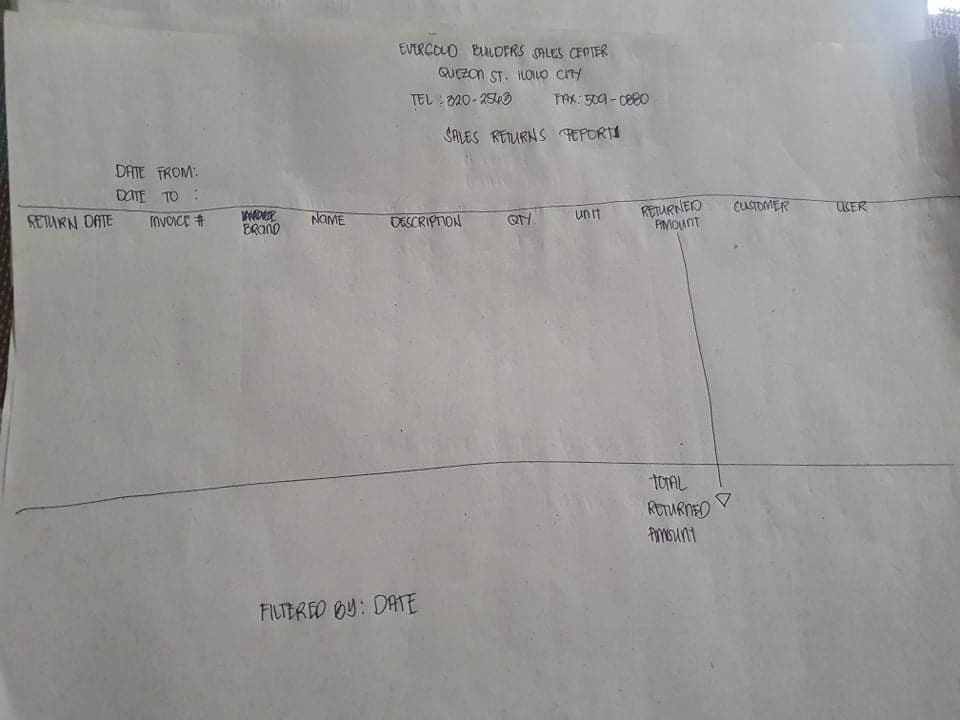 EVERGOLD BUILDERS SALES CENTER
QUEZON ST. ILOILO CITY
TEL : 320-2563 FAX: 509-0880
SALES RETURNS REPORT
DATE FROM:
DATE TO :
RETURN DATE INVOICE # BRAND NAME DESCRIPTION QTY UNIT RETURNED AMOUNT CUSTOMER USER
TOTAL
RETURNED
AMOUNT
FILTERED BY: DATE